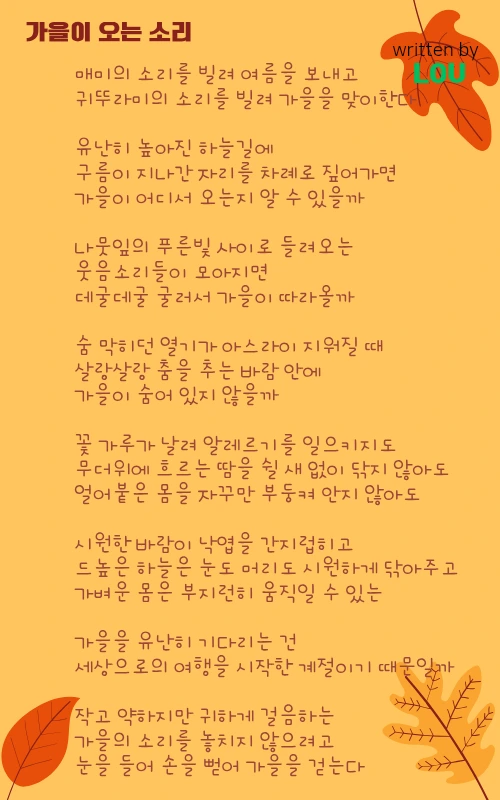 가을이 오는 소리
written by
LOU
매미의 소리를 빌려 여름을 보내고
귀뚜라미의 소리를 빌려 가을을 맞이한다
유난히 높아진 하늘길에
구름이 지나간 자리를 차례로 짚어가면
가을이 어디서 오는지 알 수 있을까
나뭇잎의 푸른빛 사이로 들려오는
웃음소리들이 모아지면
데굴데굴 굴러서 가을이 따라올까
숨 막히던 열기가 아스라이 지워질 때
살랑살랑 춤을 추는 바람 안에
가을이 숨어 있지 않을까
꽃 가루가 날려 알레르기를 일으키지도
무더위에 흐르는 땀을 쉴 새 없이 닦지 않아도
얼어붙은 몸을 자꾸만 부둥켜 안지 않아도
시원한 바람이 낙엽을 간지럽히고
드높은 하늘은 눈도 머리도 시원하게 닦아주고
가벼운 몸은 부지런히 움직일 수 있는
가을을 유난히 기다리는 건
세상으로의 여행을 시작한 계절이기 때문일까
작고 약하지만 귀하게 걸음하는
가을의 소리를 놓치지 않으려고
눈을 들어 손을 뻗어 가을을 걷는다